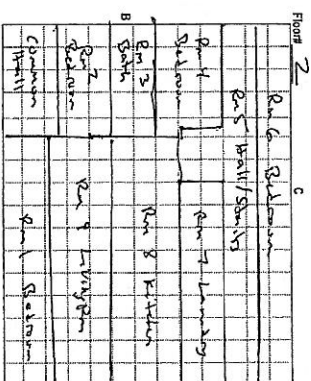 Floor# 2
C
Rm 6 Bedroom
Rm 5 Hall/Stairs
Rm 4
Bedroom
Rm 7 Laundry
B
Rm 3
Bath
Rm 8 Kitchen
Rm 2
Bedroom
Rm 9 LivingRm
Common
Hall
Rm 1 Bedroom